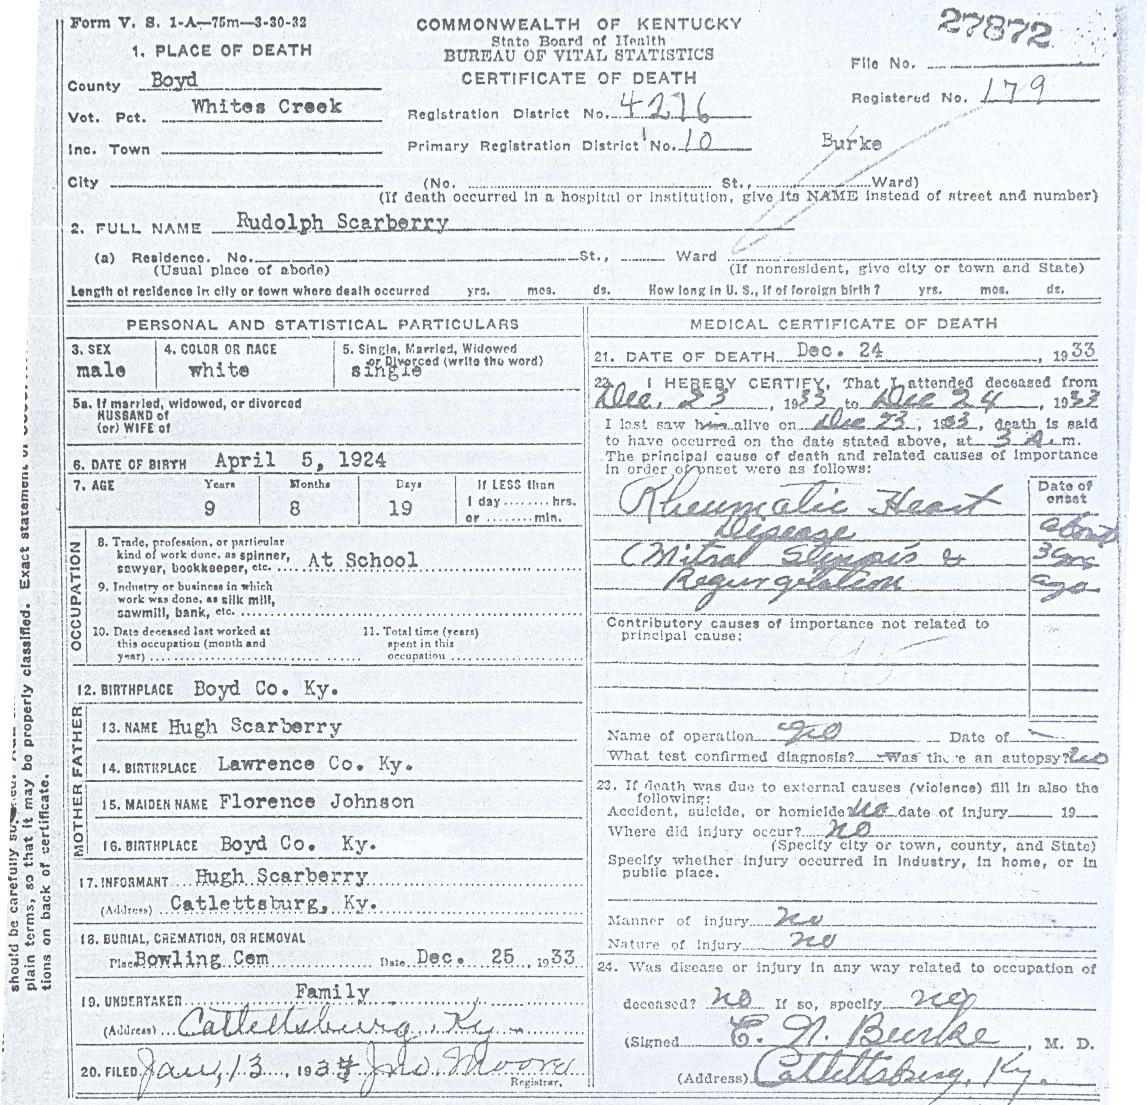 Form V. S. 1-A—75m—3-30-32
COMMONWEALTH OF KENTUCKY
State Board of Health
BUREAU OF VITAL STATISTICS
CERTIFICATE OF DEATH
27872
File No.
Registered No. 179
1. PLACE OF DEATH
County Boyd
Vot. Pct. Whites Creek
Registration District No. 4276
Inc. Town
Primary Registration District No. 10
Burke
City (No. St., Ward)
(If death occurred in a hospital or institution, give its NAME instead of street and number)
2. FULL NAME Rudolph Scarberry
(a) Residence. No. St., Ward
(Usual place of abode) (If nonresident, give city or town and State)
Length of residence in city or town where death occurred yrs. mos. ds. How long in U. S., if of foreign birth? yrs. mos. ds.
PERSONAL AND STATISTICAL PARTICULARS
3. SEX male
4. COLOR OR RACE white
5. Single, Married, Widowed
or Divorced (write the word)
single
5a. If married, widowed, or divorced
HUSBAND of
(or) WIFE of
6. DATE OF BIRTH April 5, 1924
7. AGE Years Months Days If LESS than
9 8 19 1 day........hrs.
or ........min.
OCCUPATION
8. Trade, profession, or particular
kind of work done, as spinner,
sawyer, bookkeeper, etc. At School
9. Industry or business in which
work was done, as silk mill,
sawmill, bank, etc.
10. Date deceased last worked at
this occupation (month and
year)
11. Total time (years)
spent in this
occupation
12. BIRTHPLACE Boyd Co. Ky.
FATHER
13. NAME Hugh Scarberry
14. BIRTHPLACE Lawrence Co. Ky.
MOTHER
15. MAIDEN NAME Florence Johnson
16. BIRTHPLACE Boyd Co. Ky.
17. INFORMANT Hugh Scarberry
(Address) Catlettsburg, Ky.
18. BURIAL, CREMATION, OR REMOVAL
Place Bowling Cem Date Dec. 25, 1933
19. UNDERTAKER Family
(Address) Catlettsburg, Ky.
20. FILED Jan, 13, 1934 Jno. Moore
Registrar,
MEDICAL CERTIFICATE OF DEATH
21. DATE OF DEATH Dec. 24, 1933
22. I HEREBY CERTIFY, That I attended deceased from
Dec. 23, 1933 to Dec 24, 1933
I last saw him alive on Dec 23, 1933, death is said
to have occurred on the date stated above, at 3 A. m.
The principal cause of death and related causes of importance
in order of onset were as follows:
Date of
onset
Rheumatic Heart
Disease about
Mitral Stenosis & 3
Regurgitation ago
Contributory causes of importance not related to
principal cause:
Name of operation no Date of
What test confirmed diagnosis? Was there an autopsy? no
23. If death was due to external causes (violence) fill in also the
following:
Accident, suicide, or homicide no date of injury 19
Where did injury occur? no
(Specify city or town, county, and State)
Specify whether injury occurred in industry, in home, or in
public place.
Manner of injury no
Nature of injury no
24. Was disease or injury in any way related to occupation of
deceased? no If so, specify no
(Signed E. N. Burke, M. D.
(Address) Catlettsburg, Ky.
plain terms, so that it may be properly classified. Exact statement of
tions on back of certificate.